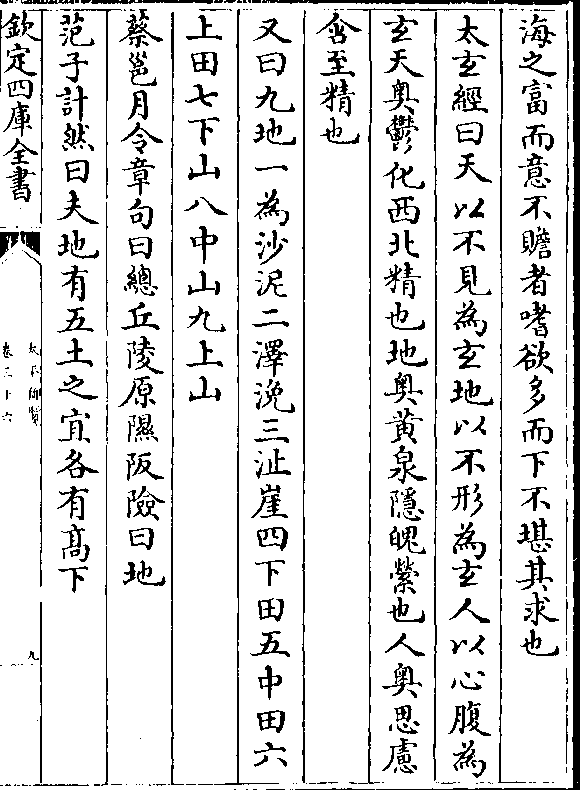 海之富而意不贍者嗜欲多而下不堪其求也
太玄經曰天以不見為玄地以不形為玄人以心腹為
玄天奥鬱化西北精也地奥黄泉隱魄縈也人奥思慮
含至精也
又曰九地一為沙泥二澤浼三沚崖四下田五中田六
上田七下山八中山九上山
蔡邕月令章句曰總丘陵原隰阪險曰地
范子計然曰夫地有五土之宜各有髙下
欽定四庫全書
太平御覽
卷三十六
九